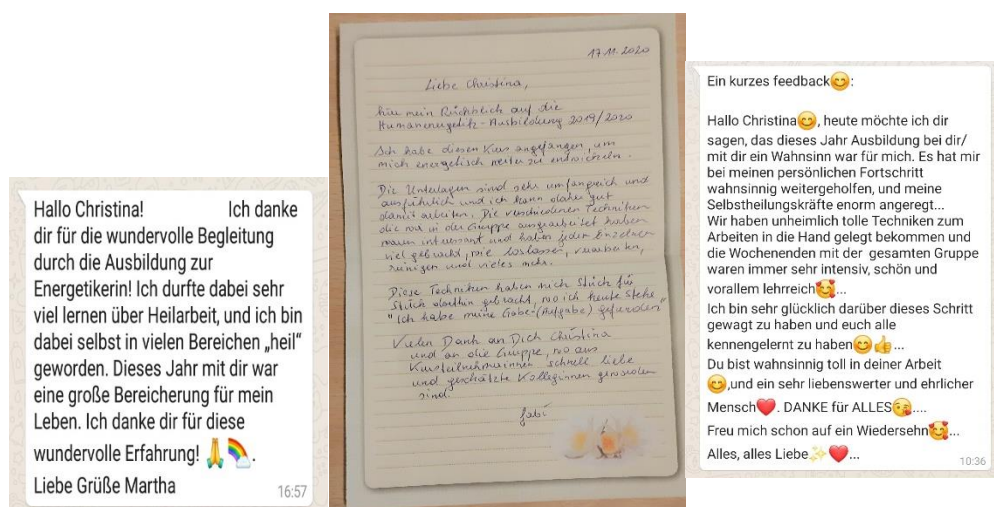 Hallo Christina! Ich danke
dir für die wundervolle Begleitung
durch die Ausbildung zur
Energetikerin! Ich durfte dabei sehr
viel lernen über Heilarbeit, und ich bin
dabei selbst in vielen Bereichen „heil“
geworden. Dieses Jahr mit dir war
eine große Bereicherung für mein
Leben. Ich danke dir für diese
wundervolle Erfahrung! 🙏🌈.
Liebe Grüße Martha
16:57
17.11.2020
Liebe Christina,
hier mein Rückblick auf die
Humanenergetik-Ausbildung 2019/2020
Ich habe diesen Kurs angefangen, um
mich energetisch weiter zu entwickeln.
Die Unterlagen sind sehr umfangreich und
ausführlich und ich kann daher gut
damit arbeiten. Die verschiedenen Techniken
die wir in der Gruppe ausgearbeitet haben
waren interessant und haben jeden Einzelnen
viel gebracht, wie loslassen, verarbeiten,
reinigen und vieles mehr.
Diese Techniken haben mich Stück für
Stück dorthin gebracht, wo ich heute stehe
"Ich habe meine Gabe-(Aufgabe) gefunden"
Vielen Dank an Dich Christina
und an die Gruppe, wo aus
Kursteilnehmerinnen schnell liebe
und geschätzte Kolleginnen geworden
sind.
Gabi
Ein kurzes feedback😊:
Hallo Christina😊, heute möchte ich dir
sagen, das dieses Jahr Ausbildung bei dir/
mit dir ein Wahnsinn war für mich. Es hat mir
bei meinen persönlichen Fortschritt
wahnsinnig weitergeholfen, und meine
Selbstheilungskräfte enorm angeregt...
Wir haben unheimlich tolle Techniken zum
Arbeiten in die Hand gelegt bekommen und
die Wochenenden mit der gesamten Gruppe
waren immer sehr intensiv, schön und
vorallem lehrreich🥰...
Ich bin sehr glücklich darüber dieses Schritt
gewagt zu haben und euch alle
kennengelernt zu haben😊👍...
Du bist wahnsinnig toll in deiner Arbeit
😊,und ein sehr liebenswerter und ehrlicher
Mensch❤️. DANKE für ALLES😘....
Freu mich schon auf ein Wiedersehn🥰...
Alles, alles Liebe✨❤️...
10:36